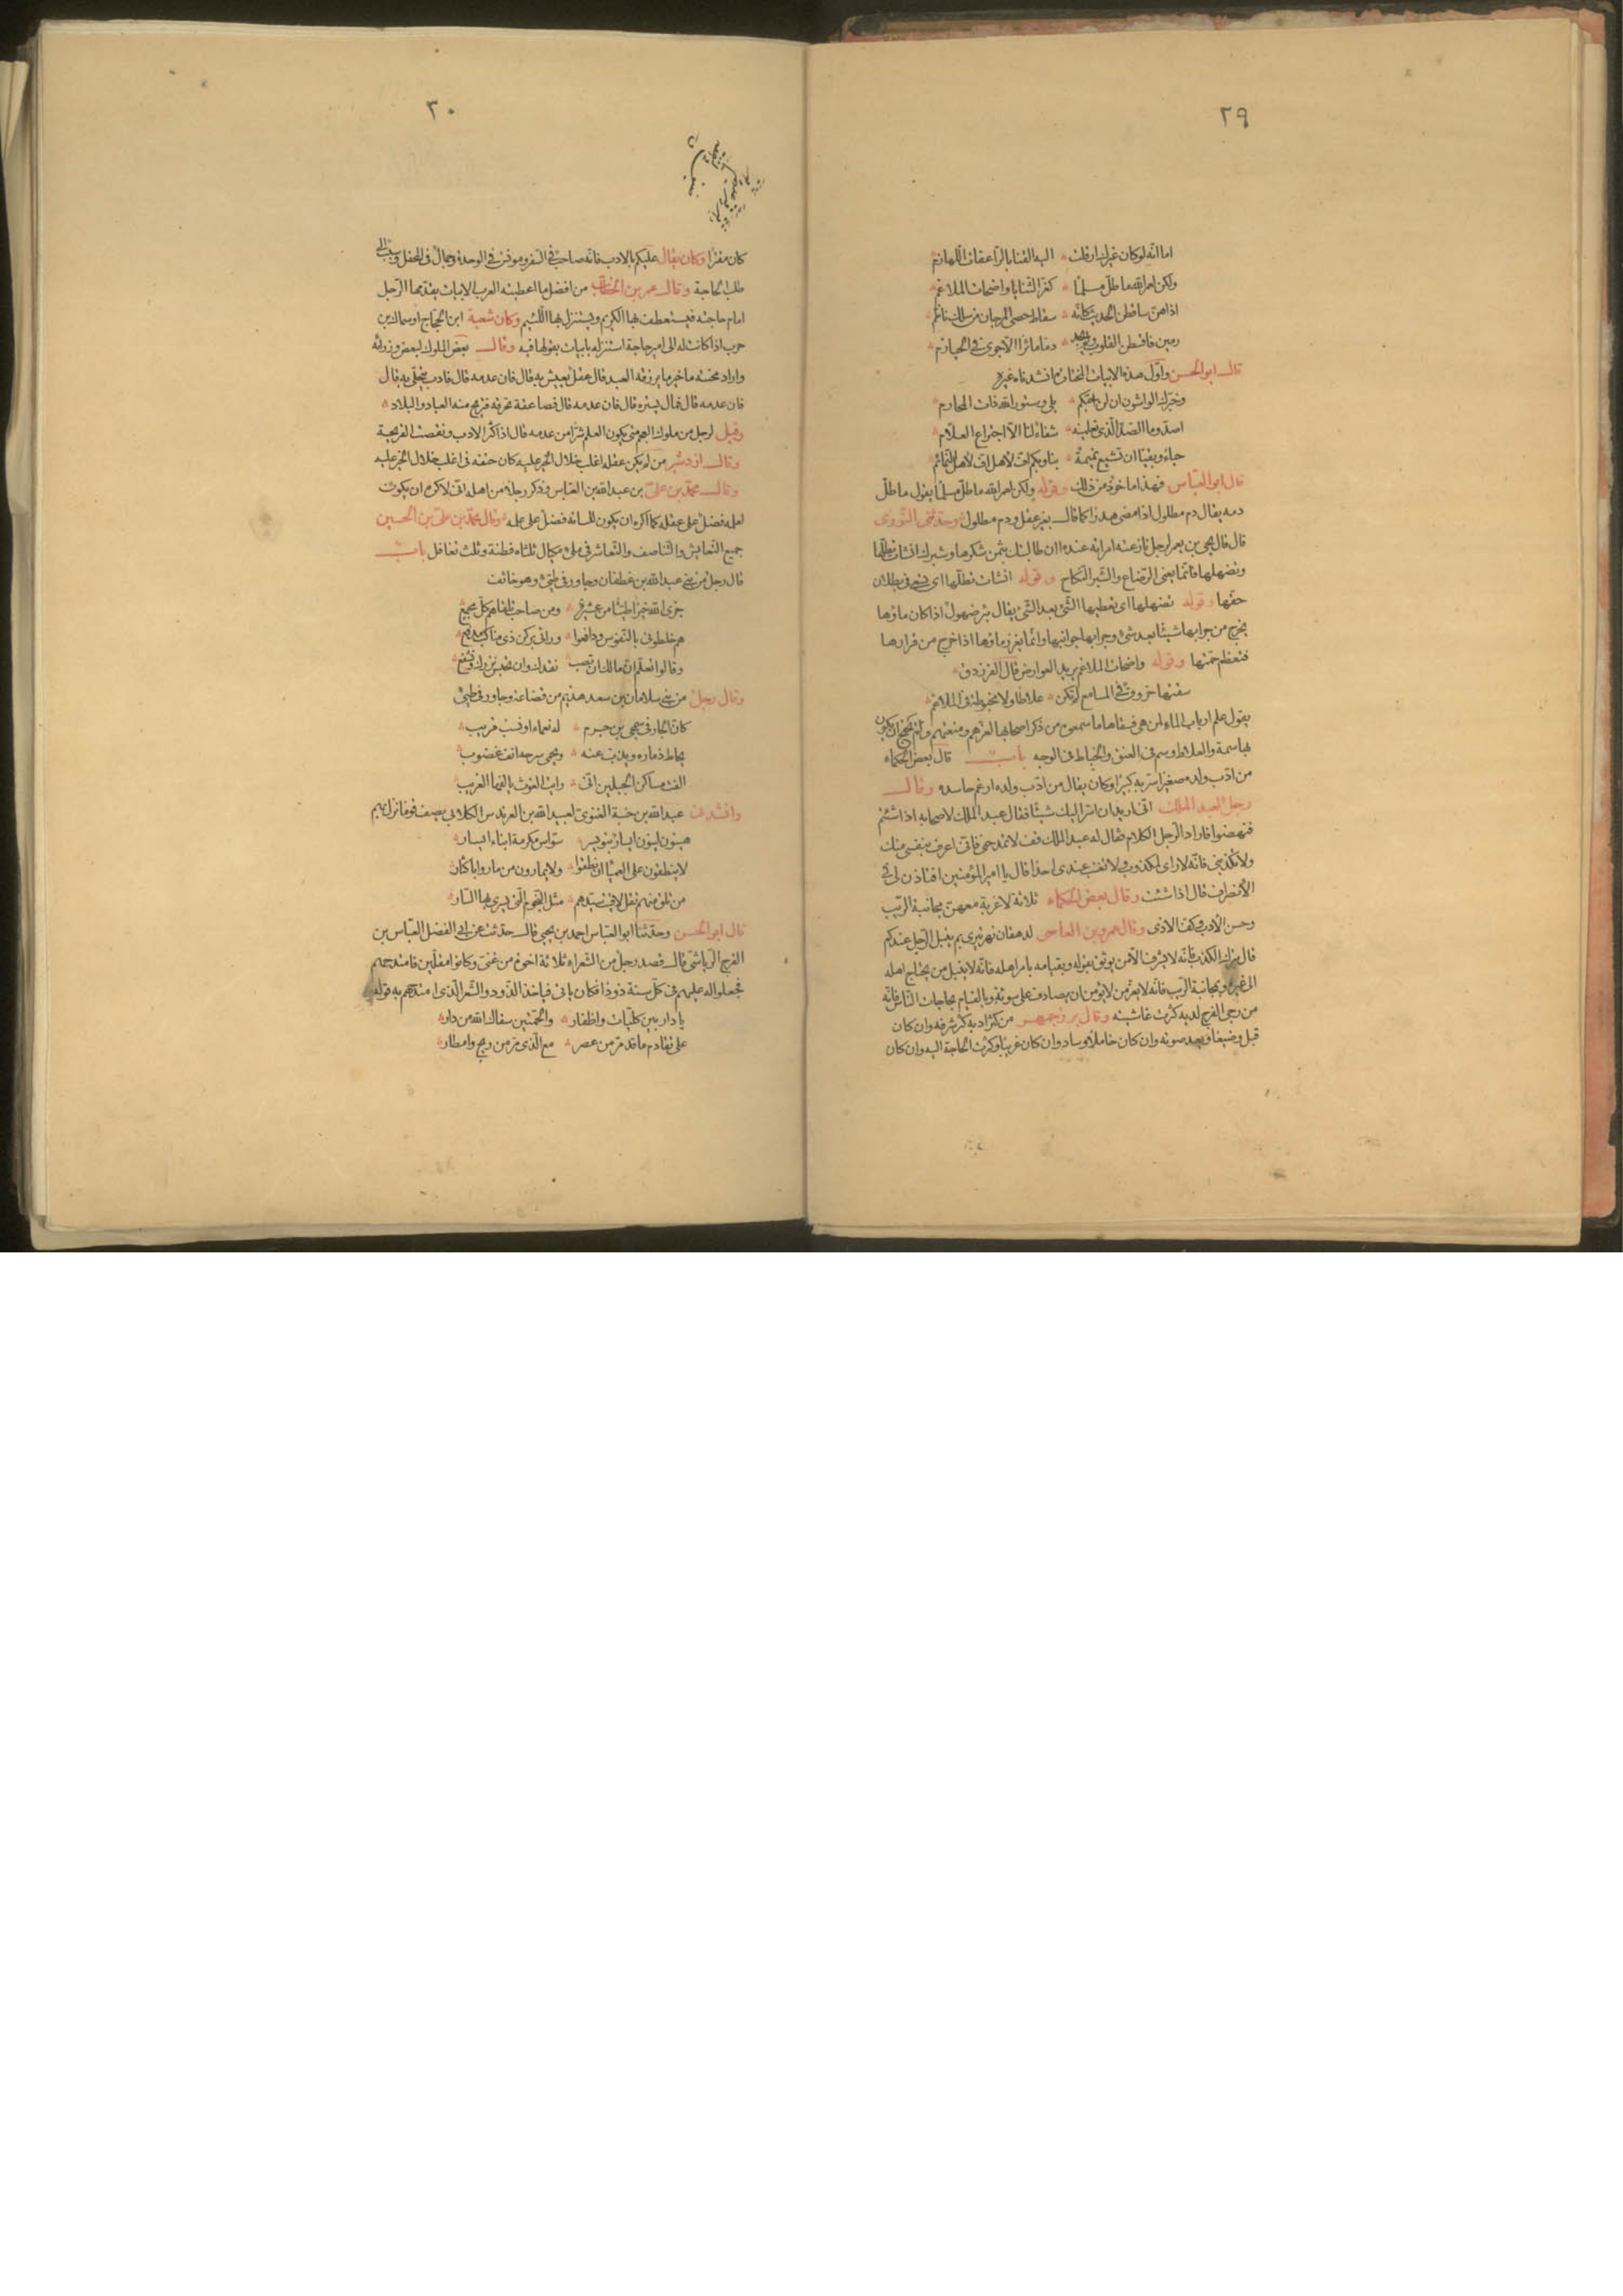 ٢٩
اما انه لوكان غيرك ارقلت اليه القنا بالراعفات اللهاذم
ولكن لعمر الله ماطل مسلما كغر الثنايا واضحات الملاغم
اذا هن ساقطن الحديث كانه سقاط حصى المرجان من سلك ناظم
رمين فاقصدن القلوب فلم نجد دما مائرا الا جوى فى الحيازم
قال ابو الحسن واول هذه الابيات المختارة انشدناه غيره
وخبرك الواشون ان لن احبكم بلى وستور الله ذات المحارم
اصد وما الصد الذى تعلمينه شفاء لنا الا اجتراع العلاقم
حياء وبقيا ان تشيع نميمة بنا وبكم اف لاهل النمائم
قال ابو العباس فهذا ماخوذ من ذلك وقوله ولكن لعمر الله ماطل مسلما يقول ماطل
دمه يقال دم مطلول اذا مضى هدرا كما قال بغير عقل ودم مطلول وحدثنى التوزى
قال قال يحيى بن يعمر لرجل نازعته امراته عنده اان طالبتك بثمن شكرها وشبرك انشات تطلها
وتضهلها فانما يعنى الرضاع والشبر النكاح وقوله انشات تطلها اى تسعى فى بطلان
حقها وقوله تضهلها اى تعطيها الشئ بعد الشئ يقال بئر ضهول اذا كان ماؤها
يخرج من جرابها شيئا بعد شئ وجرابها جوانبها وانما يغزر ماؤها اذا خرج من قرارها
فتعظم جمتها وقوله واضحات الملاغم يريد العوارض قال الفرزدق
سقتها خروق فى المسامع لم تكن علاطا ولا مخبوطة فى الملاغم
يقول علم ارباب الماء لمن هى فسقاها ما سمعوه من ذكر اصحابها لعزهم ومنعتهم ولم تحتج ان يكون
بها سمة والعلاط وسم فى العنق والخباط فى الوجه باب قال بعض الحكماء
من ادب ولده صغيرا سر به كبيرا وكان يقال من ادب ولده ارغم حاسده وقال
رجل لعبد الملك انى اريد ان اسر اليك شيئا فقال عبد الملك لاصحابه اذا شئتم
فنهضوا فاراد الرجل الكلام فقال له عبد الملك قف لا تمدحنى فانى اعرف بنفسى منك
ولا تكذبنى فانه لا راى لمكذوب ولا تغتب عندى احدا قال يا امير المؤمنين افتاذن لى فى
الانصراف قال اذا شئت وقال بعض الحكماء ثلاثة لا غربة معهن مجانبة الريب
وحسن الادب وكف الاذى وقال عمرو بن العاص لدهقان نهر تيرى بم ينبل الرجل عندكم
قال بترك الكذب فانه لا يشرف الا من يوثق بقوله وبقيامه بامر اهله فانه لا ينبل من يحتاج اهله
الى غيره وبمجانبة الريب فانه لا يعز من لا يؤمن ان يصادف على سوءة وبالقيام بحاجات الناس فانه
من رجى الفرج لديه كثرت غاشيته وقال بزرجمهر من كثر ادبه كثر شرفه وان كان
قبل وضيعا وبعد صوته وان كان خاملا وساد وان كان غريبا وكثرت الحاجة اليه وان كان
٣٠
كان مقترا وكان يقال عليكم بالادب فانه صاحب فى السفر ومونس فى الوحدة وجمال فى المحفل وسبب الى
طلب الحاجة وقال عمر بن الخطاب من افضل ما اعطيته العرب الابيات يقدمها الرجل
امام حاجته فيستعطف بها الكريم ويستنزل بها اللئيم وكان شعبة ابن الحجاج او سماك بن
حرب اذا كانت له الى امير حاجة استنزله بابيات يقولها فيه وقال بعض الملوك لبعض وزرائه
واراد محنته ما خير ما يرزقه العبد قال عقل يعيش به قال فان عدمه قال فادب يتحلى به قال
فان عدمه قال فمال يستره قال فان عدمه قال فصاعقة تحرقه فتريح منه العباد والبلاد
وقيل لرجل من ملوك العجم متى يكون العلم شرا من عدمه قال اذا كثر الادب ونقصت القريحة
وقال ازدشير من لم يكن عقله اغلب خلال الخير عليه كان حتفه فى اغلب خلال الخير عليه
وقال محمد بن على بن عبد الله بن العباس وذكر رجلا من اهله انى لاكره ان يكون
لعلمه فضل على عقله كما اكره ان يكون للسانه فضل على علمه وقال محمد بن على بن الحسين
جميع التعايش والتناصف والتعاشر فى ملء مكيال ثلثاه فطنة وثلث تغافل باب
قال رجل من بنى عبد الله بن غطفان وجاور فى طيئ وهو خائف
جزى الله خيرا طيئا من عشيرة ومن صاحب تلقاهم كل مجمع
هم خلطونى بالنفوس ودافعوا ورائى بركن ذى مناكب مدفع
وقالوا تعلم ان مالك ان تصب نفدك وان تحبس نزرك ونشفع
وقال رجل من بنى سلامان بن سعد هذيم من قضاعة وجاور فى طيئ
كان الجار فى شمجى بن جرم له نعماء او نسب قريب
يحاط ذماره ويذب عنه ويحمى سرحه انف غضوب
الفت مساكن الجبلين انى رايت الغوث يالفها الغريب
وانشدنى عبد الله بن خبة الغنوى لعبيد الله بن العرندس الكلابى يصف قوما نزل بهم
هينون لينون ايسار بنو يسر سواس مكرمة ابناء ايسار
لا ينطقون على العمياء ان نطقوا ولا يمارون من ماروا باكثار
من تلق منهم تقل لاقيت سيدهم مثل النجوم التى يسرى بها السار
قال ابو الحسن وحدثنا ابو العباس احمد بن يحيى قال حدثت عن ابى الفضل العباس بن
الفرج الرياشى قال قصد رجل من الشعراء ثلاثة اخوة من غنى وكانوا مقلين فامتدحهم
فجعلوا له عليهم فى كل سنة ذودا فكان ياتى فياخذ الذود والشعر الذى امتدحهم به قوله
يا دار بين كليات واظفار والحمتين سقاك الله من دار
على تقادم ما قد مر من عصر مع الذى مر من ريح وامطار